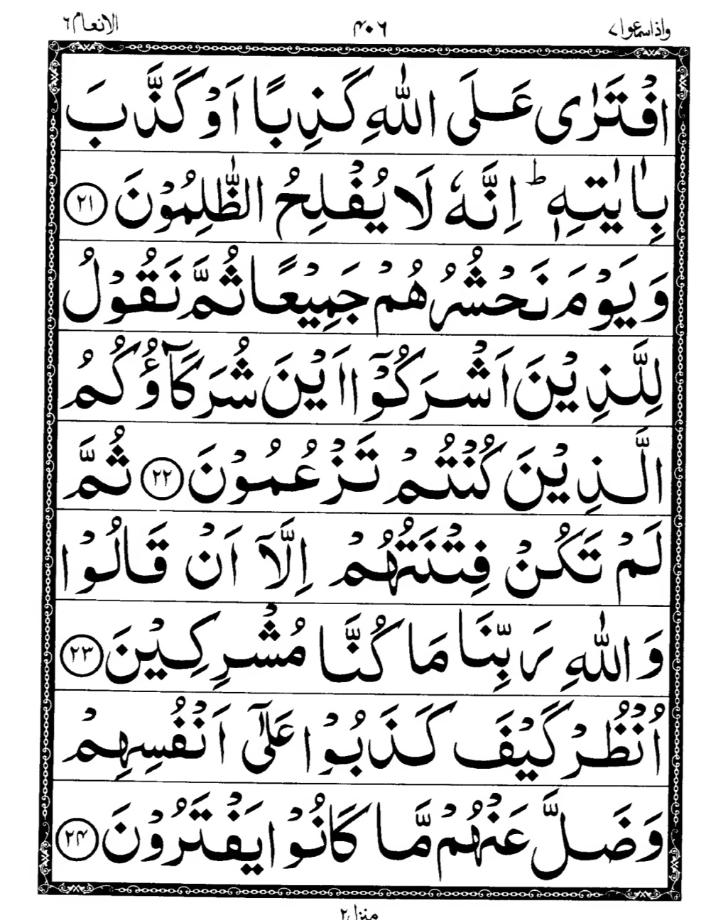 واذاسمعوا ٧ ۴۰۶ الانعام ٦
افْتَرٰی عَلَی اللّٰهِ كَذِبًا اَوْ كَذَّبَ
بِاٰیٰتِهٖ ؕ اِنَّهٗ لَا یُفْلِحُ الظّٰلِمُوْنَ ﴿۲۱﴾
وَیَوْمَ نَحْشُرُهُمْ جَمِیْعًا ثُمَّ نَقُوْلُ
لِلَّذِیْنَ اَشْرَكُوْۤا اَیْنَ شُرَكَآؤُكُمُ
الَّذِیْنَ كُنْتُمْ تَزْعُمُوْنَ ﴿۲۲﴾ ثُمَّ
لَمْ تَكُنْ فِتْنَتُهُمْ اِلَّاۤ اَنْ قَالُوْا
وَاللّٰهِ رَبِّنَا مَا كُنَّا مُشْرِكِیْنَ ﴿۲۳﴾
اُنْظُرْ كَیْفَ كَذَبُوْا عَلٰۤی اَنْفُسِهِمْ
وَضَلَّ عَنْهُمْ مَّا كَانُوْا یَفْتَرُوْنَ ﴿۲۴﴾
منزل ۲